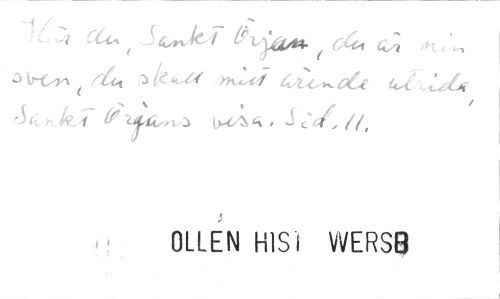 Här du, Sankt Örjan, du är min
sven, du skall mitt ärende utrida,
Sankt Örjans visa. Sid. 11.
OLLÉN HIST WERSB